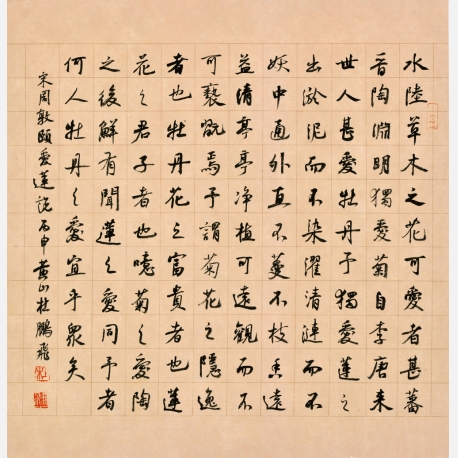 水陸草木之花可愛者甚蕃
晉陶淵明獨愛菊自李唐来
世人甚愛牡丹予獨愛蓮之
出淤泥而不染濯清漣而不
妖中通外直不蔓不枝香遠
益清亭亭净植可遠觀而不
可褻翫焉予謂菊花之隱逸
者也牡丹花之富貴者也蓮
花之君子者也噫菊之愛陶
之後鮮有聞蓮之愛同予者
何人牡丹之愛宜乎眾矣
宋周敦頤愛蓮說丙申黄山杜鵬飛